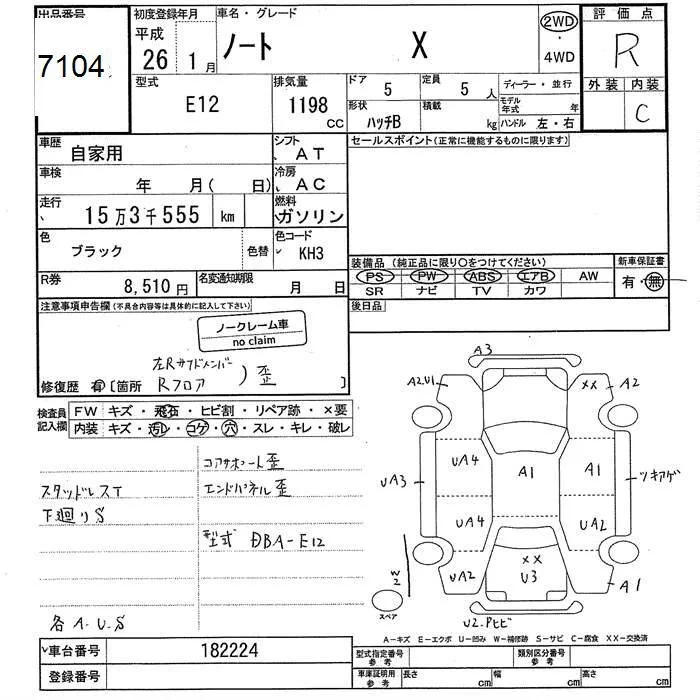 出品番号 初度登録年月 車名・グレード 評価点
7104 平成 26 1月 ノート X 2WD・4WD R
型式 排気量 ドア 定員 ディーラー・並行 外装 内装
E12 1198 CC 5 5人 C
形状 積載 モデル年式 年
ハッチB kg ハンドル 左・右
車歴 自家用 シフト AT セールスポイント(正常に機能するものに限ります)
車検 年 月( 日) 冷房 AC
走行 15万3千555 km 燃料 ガソリン
色 ブラック 色替 色コード KH3
装備品(純正品に限り○をつけてください) 新車保証書
PS PW ABS エアB AW 有・無
SR ナビ TV カワ
R券 8,510円 名変通知期限 月 日
後日品
注意事項申告欄(不具合内容等は具体的に記入して下さい)
ノークレーム車
no claim
左Rサイドメンバー
修復歴 有〔箇所 Rフロア )歪 〕
検査員記入欄
FW キズ・飛石・ヒビ割・リペア跡・×要
内装 キズ・汚レ・コゲ・穴・スレ・キレ・破レ
コアサポート歪
スタッドレスT エンドパネル歪
下廻りS
型式 DBA-E12
各A.U.S
A3
A2U1 XX A2
UA3 UA4 A1 A1 ツキアゲ
UA4 UA2
W2 UA2 XX U3 A1
スペア U2.Pヒビ
A-キズ E-エクボ U-凹み W-補修跡 S-サビ C-腐食 XX-交換済
車台番号 182224
登録番号
型式指定番号 参考 類別区分番号 参考
車庫証明用 参考 長さ cm 幅 cm 高さ cm